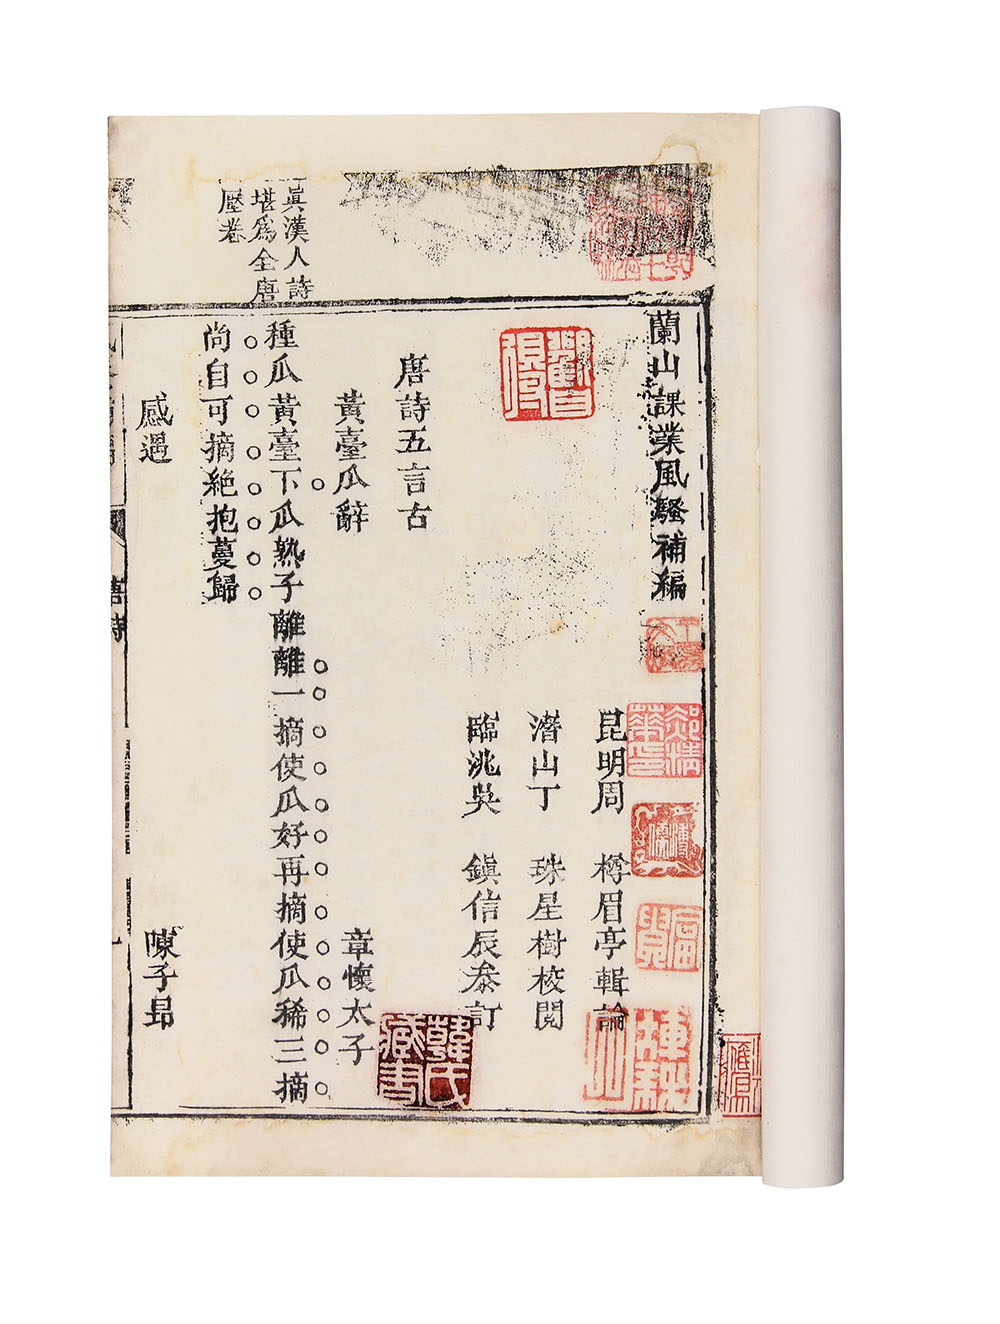 眞漢人詩
堪爲全唐
壓卷
蘭山課業風騷補編
昆明周 樽眉亭輯論
潛山丁 珠星樹校閱
臨洮吳 鎭信辰叅訂
唐詩五言古
黃臺瓜辭 章懷太子
種瓜黃臺下瓜熟子離離一摘使瓜好再摘使瓜稀三摘
尚自可摘絶抱蔓歸
感遇 陳子昂
唐詩
一
韓氏藏書